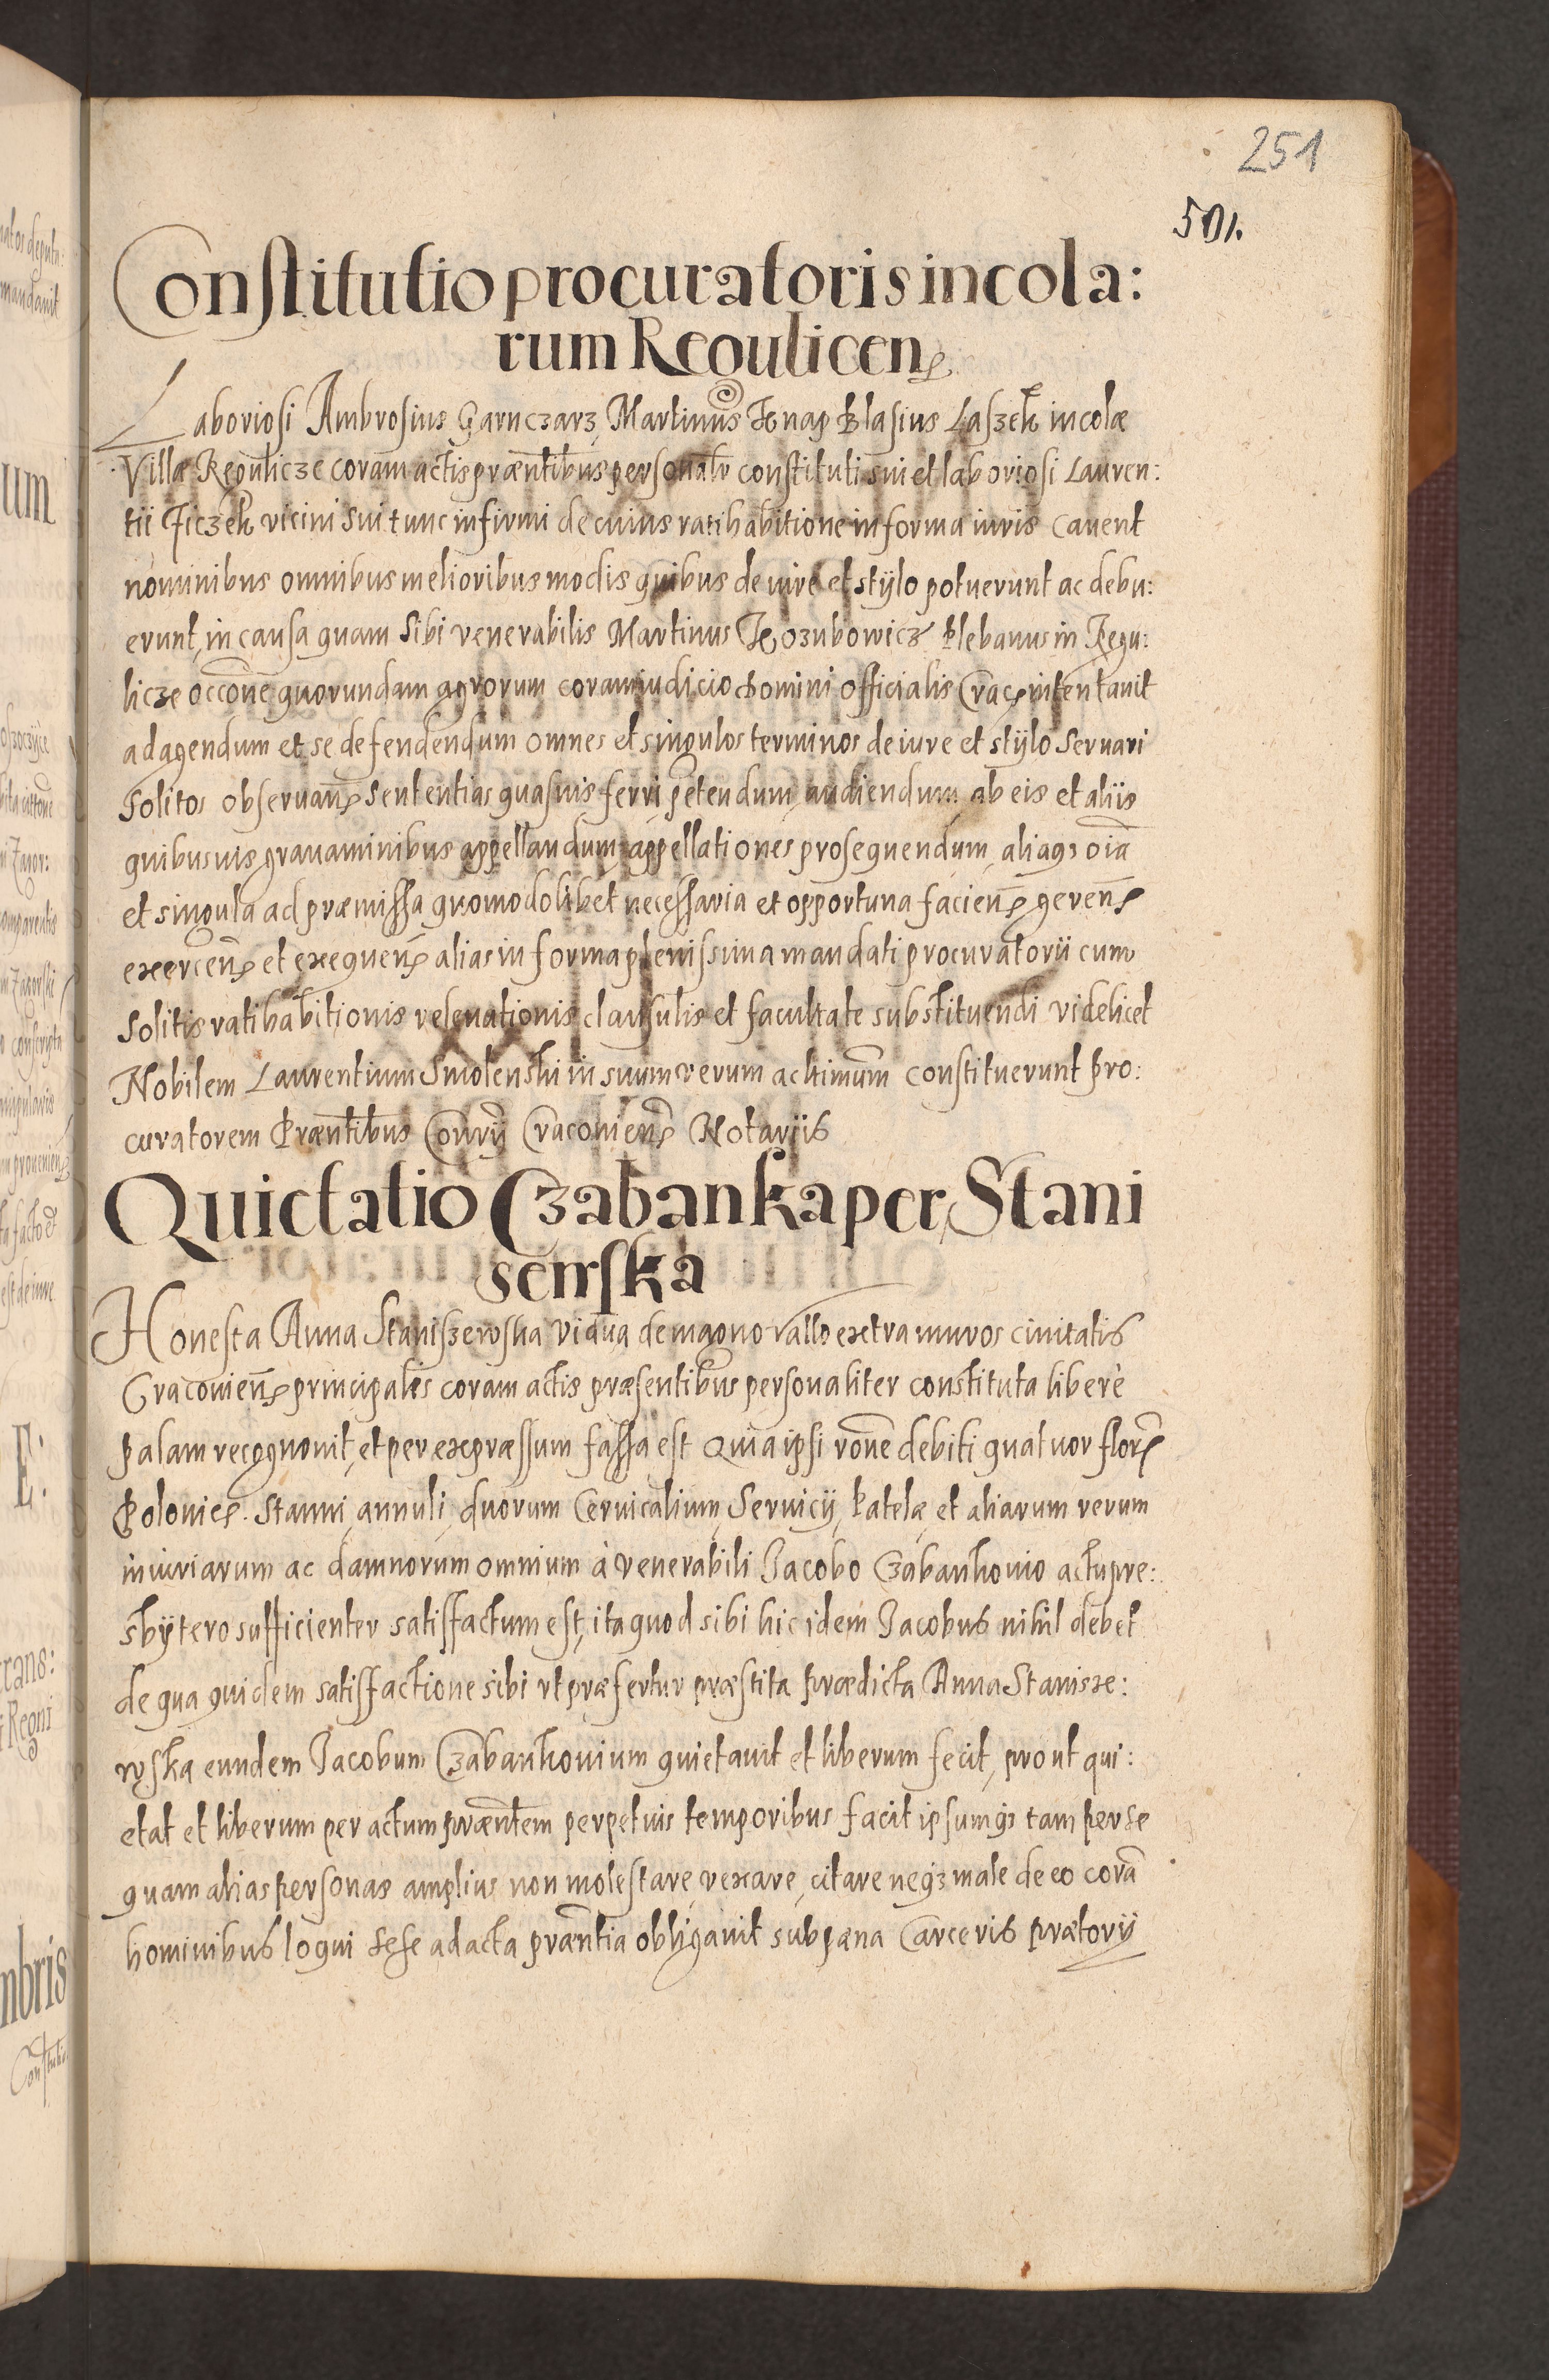 251
501.
Constitutio procuratoris incola:
rum Regulicen
Laboriosi Ambrosius Garnczarz, Martinus Knap Blasius Laszek incolæ
Villæ Regulicze coram actis præntibus personalr constituti sui et laboriosi Lauren:
tii Jiczek vicini sui tunc infirmi de cuius ratihabitione in forma iuris cavent
nominibus omnibus melioribus modis quibus de iure et stÿlo potuerunt ac debu:
erunt, in causa quam sibi venerabilis Martinus Kozubowicz Plebanus in Regu:
licze occone quorundam agrorum coram iudicio domini officialis Crac intentauit
ad agendum et se defendendum omnes et singulos terminos de iure et stÿlo seruari
solitos obseruan sententias quasuis ferri petendum, audiendum, ab eis et aliis
quibusuis grauaminibus appellandum, appellationes prosequendum, aliaqz oia
et singula ad præmissa quomodolibet necessaria et opportuna facien geren
exercen et exequen alias in forma plenissima mandati procuratorii cum
solitis ratihabitionis releuationis clausulis et facultate substituendi videlicet
Nobilem Laurentium Smolenski in suum verum ac ltimum constituerunt pro:
curatorem Præntibus Consrÿ Cracovien Notariis
Quietatio Czabanka per Stani
sewska
Honesta Anna Staniszewska vidua de magno vallo extra muros ciuitatis
Cracovien principales coram actis præsentibus personaliter constituta liberè
palam recognouit, et per expræssum fassa est Quia ipsi rone debiti quatuor flor
Polonic. Stanni, annuli, duorum Ceruicalium, Seruicÿ, Patelæ, et aliarum rerum
iniuriarum ac damnorum omnium à venerabili Jacobo Czabankouio actu pre:
sbÿtero sufficienter satisfactum est, ita quod sibi hic idem Jacobus nihil debet
de qua quidem satisfactione sibi vt præfertur præstita prædicta Anna Stanisze:
wska eundem Jacobum Czabankouium quietauit et liberum fecit, prout qui:
etat et liberum per actum præntem perpetuis temporibus facit ipsumqz tam per se
quam alias personas amplius non molestare, vexare, citare neqz male de eo corã
hominibus loqui sese ad acta præntia obligauit sub pæna Carceris prætorÿ